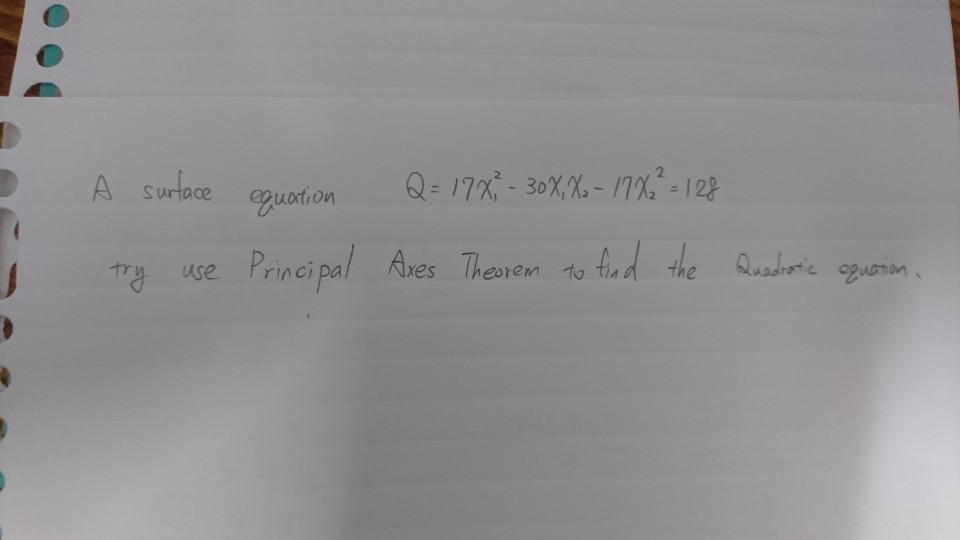 A surface equation Q = 17X₁² - 30X₁X₂ - 17X₂² = 128
try use Principal Axes Theorem to find the Quadratic equation.